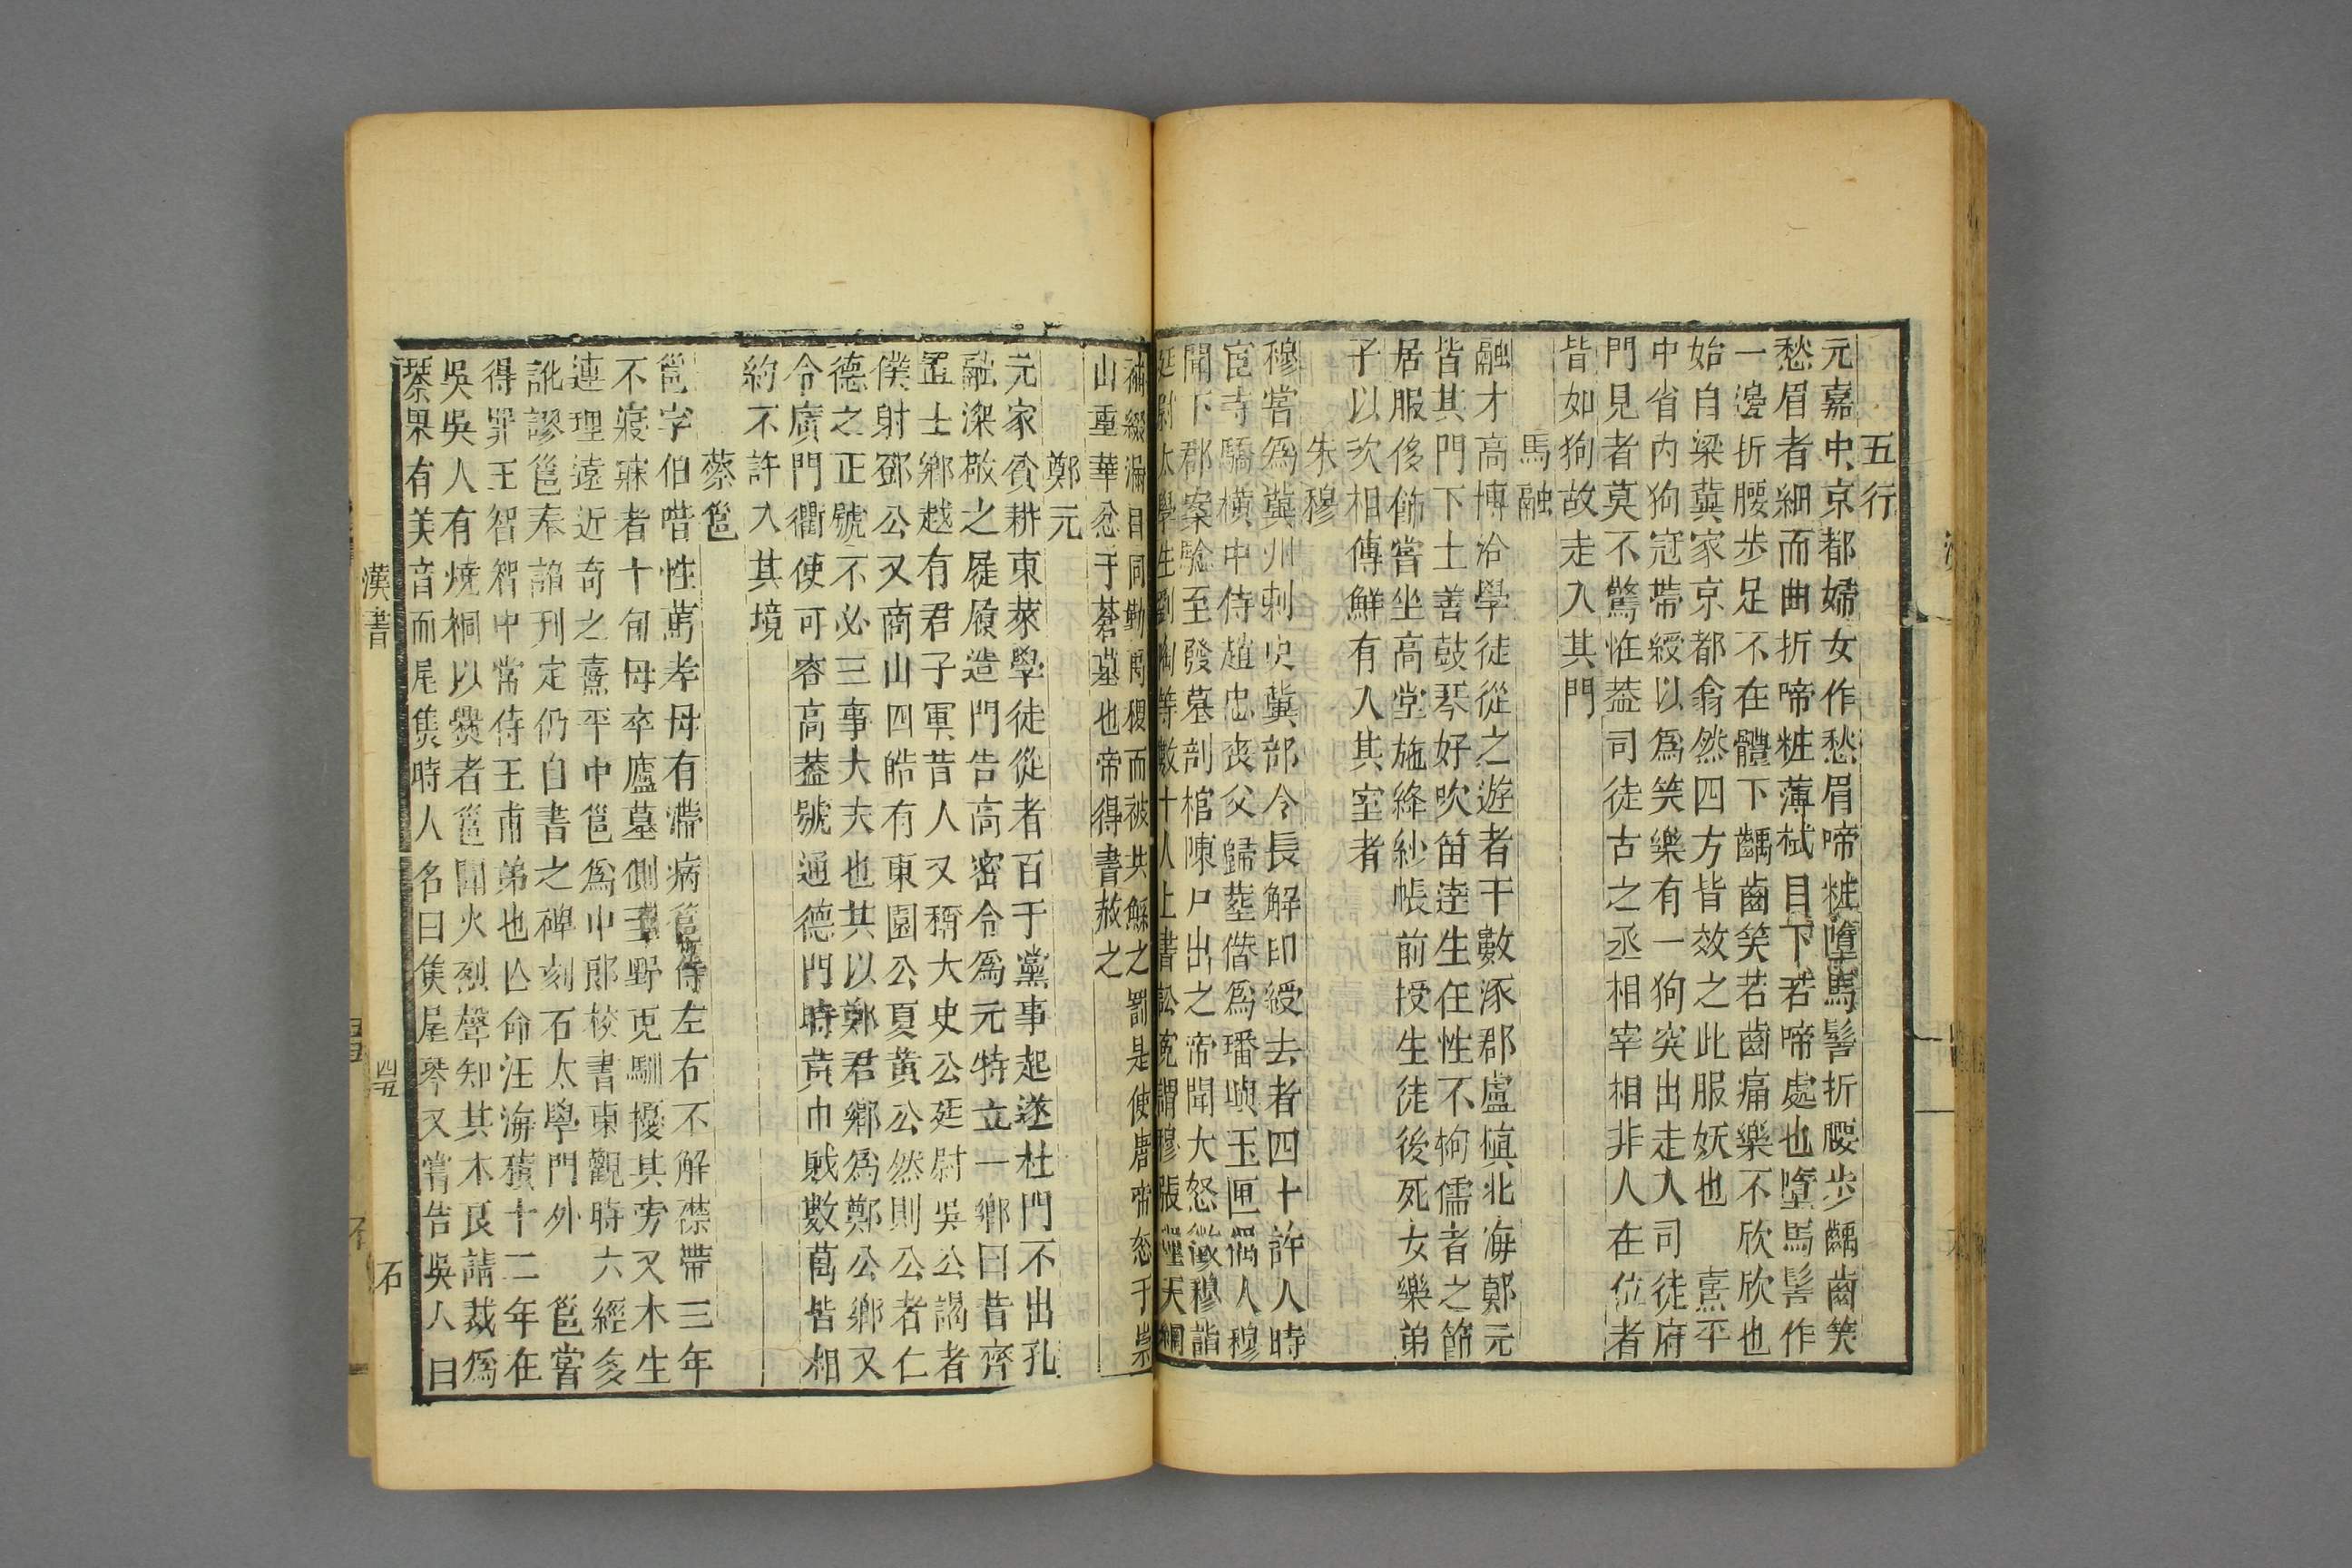 五行
元嘉中京都婦女作愁眉啼粧墮馬髻折腰步齲齒笑
愁眉者細而曲折啼粧薄拭目下若啼處也墮馬髻作
一邊折腰步足不在體下齲齒笑若齒痛樂不欣欣也
始自梁冀家京都翕然四方皆效之此服妖也 熹平
中省內狗冠帶綬以爲笑樂有一狗突出走入司徒府
門見者莫不驚恠葢司徒古之丞相宰相非人在位者
皆如狗故走入其門
馬融
融才高博洽學徒從之遊者千數涿郡盧慎北海鄭元
皆其門下士善鼓琴好吹笛達生任性不拘儒者之節
居服侈飾嘗坐高堂施絳紗帳前授生徒後死女樂弟
子以次相傳鮮有入其室者
朱穆
穆嘗爲冀州刺史冀部令長解印綬去者四十許人時
宦寺驕橫中侍趙忠喪父歸塟僣爲璠璵玉匣偶人穆
聞下郡案驗至發墓剖棺陳尸出之帝聞大怒徵穆詣
廷尉太學生劉陶等數十人上書訟寃謂穆張理天網
補綴漏目同勤禹稷而被共鯀之罰是使唐帝怒于崇
山重華忿于蒼墓也帝得書赦之
鄭元
元家貧耕東萊學徒從者百千黨事起遂杜門不出孔
融深敬之屣履造門告高密令爲元特立一鄉曰昔齊
置士鄉越有君子軍昔人又稱大史公廷尉吳公謁者
僕射鄧公又商山四皓有東園公夏黃公然則公者仁
德之正號不必三事大夫也共以鄭君鄉爲鄭公鄉又
令廣門衢使可容高葢號通德門時黃巾賊數萬皆相
約不許入其境
蔡邕
邕字伯喈性篤孝母有滯病邕侍左右不解襟帶三年
不寢寐者十旬母卒廬墓側野兎馴擾其旁又木生
連理遠近奇之熹平中邕爲中郎校書東觀時六經多
訛謬邕奉詔刋定仍自書之碑刻石太學門外 邕嘗
得罪王智智中常侍王甫弟也亾命江海積十二年在
吳吳人有燒桐以爨者邕聞火烈聲知其木良請裁爲
琴果有美音而尾焦時人名曰焦尾琴又嘗告吳人曰
漢書
四五
石